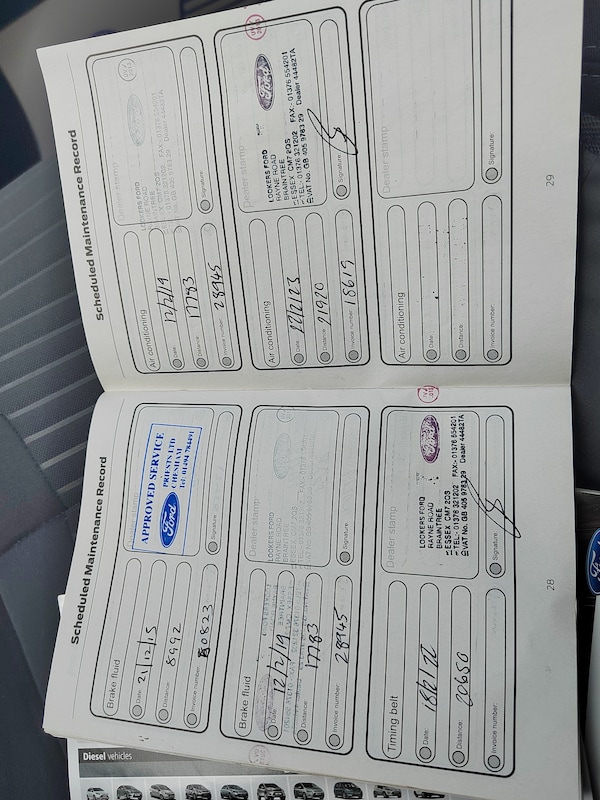 Scheduled Maintenance Record
Brake fluid
Date: 21/12/15
Distance: 8992
Invoice number: 80823
Dealer stamp
APPROVED SERVICE
Ford
PRIESTS LTD
CHESHAM
Tel: 01494 784491
Signature:
Brake fluid
Date: 12/2/19
Distance: 17783
Invoice number: 28945
Dealer stamp
LOCKERS FORD
RAYNE ROAD
BRAINTREE
Signature:
Timing belt
Date: 18/2/22
Distance: 20650
Invoice number:
Dealer stamp
Ford
LOCKERS FORD
RAYNE ROAD
BRAINTREE
ESSEX CM7 2QS
TEL:- 01376 321202 FAX:- 01376 554201
VAT No. GB 405 9783 29 Dealer 44482TA
Signature:
28
Scheduled Maintenance Record
Air conditioning
Date: 12/2/19
Distance: 17783
Invoice number: 28945
Dealer stamp
LOCKERS FORD
RAYNE ROAD
BRAINTREE
Signature:
Air conditioning
Date:
Distance: 21920
Invoice number: 18619
Dealer stamp
Ford
LOCKERS FORD
RAYNE ROAD
BRAINTREE
ESSEX CM7 2QS
TEL:- 01376 321202 FAX:- 01376 554201
VAT No. GB 405 9783 29 Dealer 44482TA
Signature:
Air conditioning
Date:
Distance:
Invoice number:
Dealer stamp
Signature:
29
Diesel vehicles